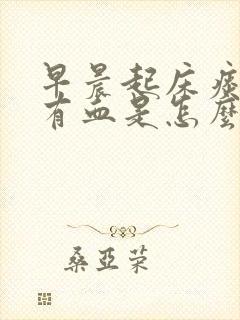 早晨起床痰
有血是怎麼
桑亚荣